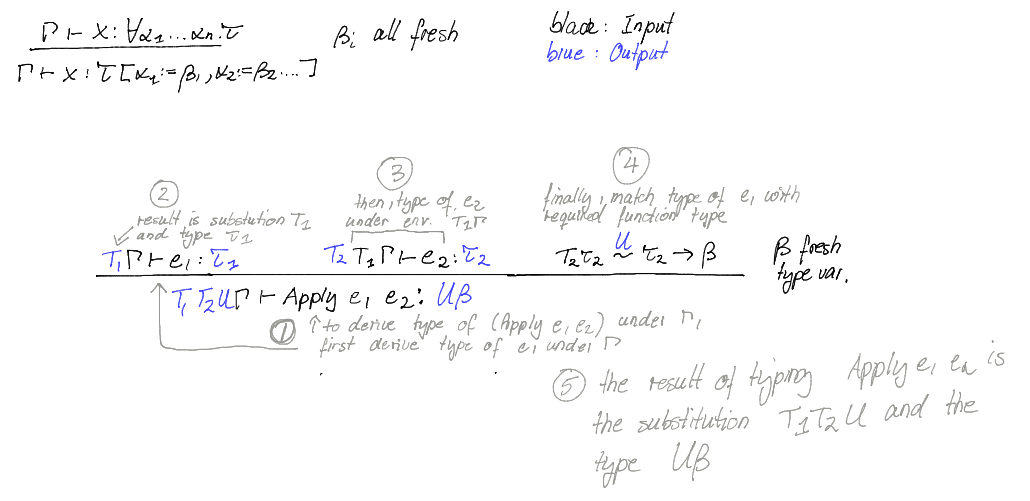 Γ ⊢ x : ∀α1 ... αn. τ
βi all fresh
black : Input
blue : Output
Γ ⊢ x : τ [α1 := β1, α2 := β2 ...]
②
result is substution T1
and type τ1
③
then, type of e2
under env. T1Γ
④
finally, match type of e1 with
required function type
T1Γ ⊢ e1 : τ1
T2 T1 Γ ⊢ e2 : τ2
T2τ2 ~ᵁ τ2 → β
β fresh
type var.
T1 T2 U Γ ⊢ Apply e1 e2 : Uβ
① ↑ to derive type of (Apply e1 e2) under Γ,
first derive type of e1 under Γ
⑤ the result of typing Apply e1 e2 is
the substitution T1 T2 U and the
type Uβ